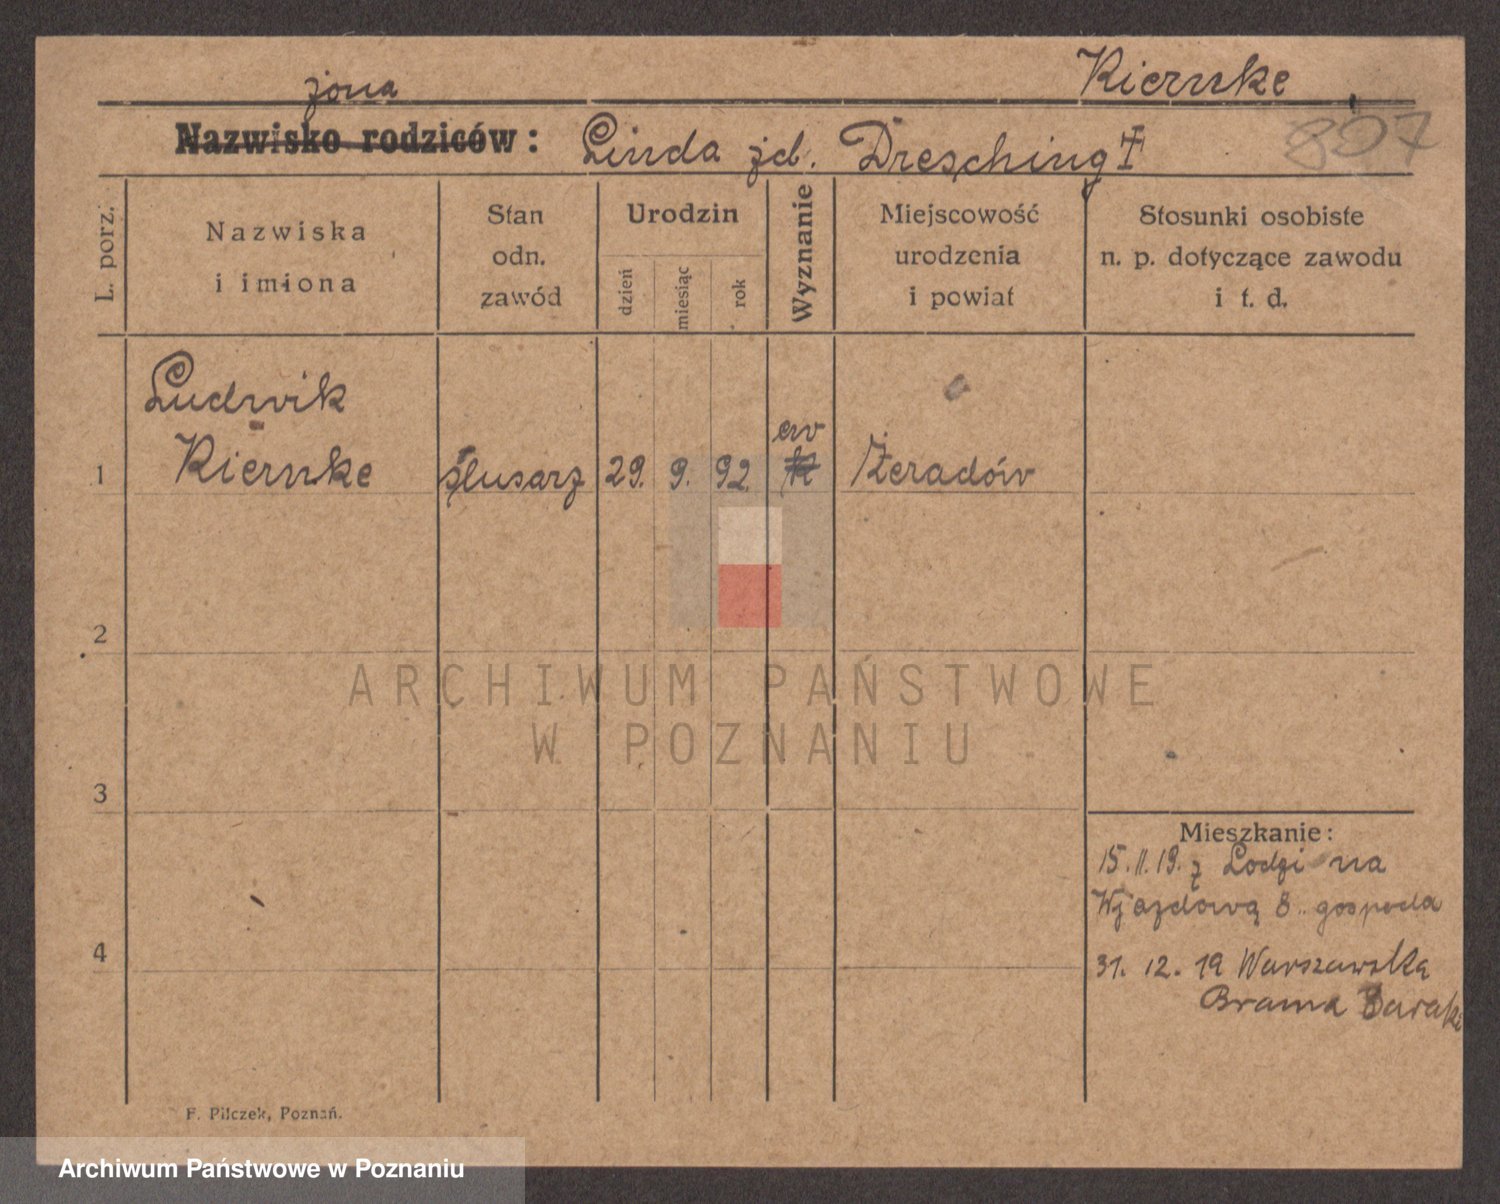 Kiernke
żona
Nazwisko rodziców :
Linda zd. Dresching
807
L. porz.
Nazwiska
i imiona
Stan
odn.
zawód
Urodzin
dzień
miesiąc
rok
Wyznanie
Miejscowość
urodzenia
i powiat
Stosunki osobiste
n. p. dotyczące zawodu
i t. d.
Ludwik
1 Kiernke ślusarz 29. 9. 92 ew Żeradów
2
ARCHIWUM PAŃSTWOWE
W POZNANIU
3
Mieszkanie:
15.11.19. z Lodzi na
Wjazdową 8. gospoda
4
31. 12. 19 Warszawska
Brama Baraki
F. Pilczek, Poznań.
Archiwum Państwowe w Poznaniu